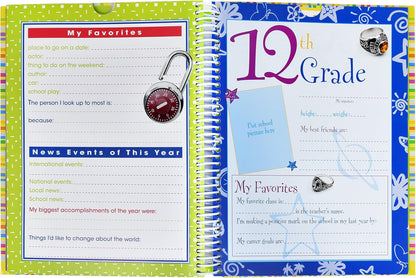 My Favorites
place to go on a date:
actor:
thing to do on the weekend:
author:
car:
school play:
The person I look up to most is:
because:
News Events of This Year
International events:
National events:
Local news:
School news:
My biggest accomplishments of the year were:
Things I'd like to change about the world:
12th
Grade
My signature
height: weight:
My best friends are:
Put school
picture here
My Favorites
My favorite class is:
is the teacher's name.
I'm making a positive mark on the school in my last year by:
My career goals are: